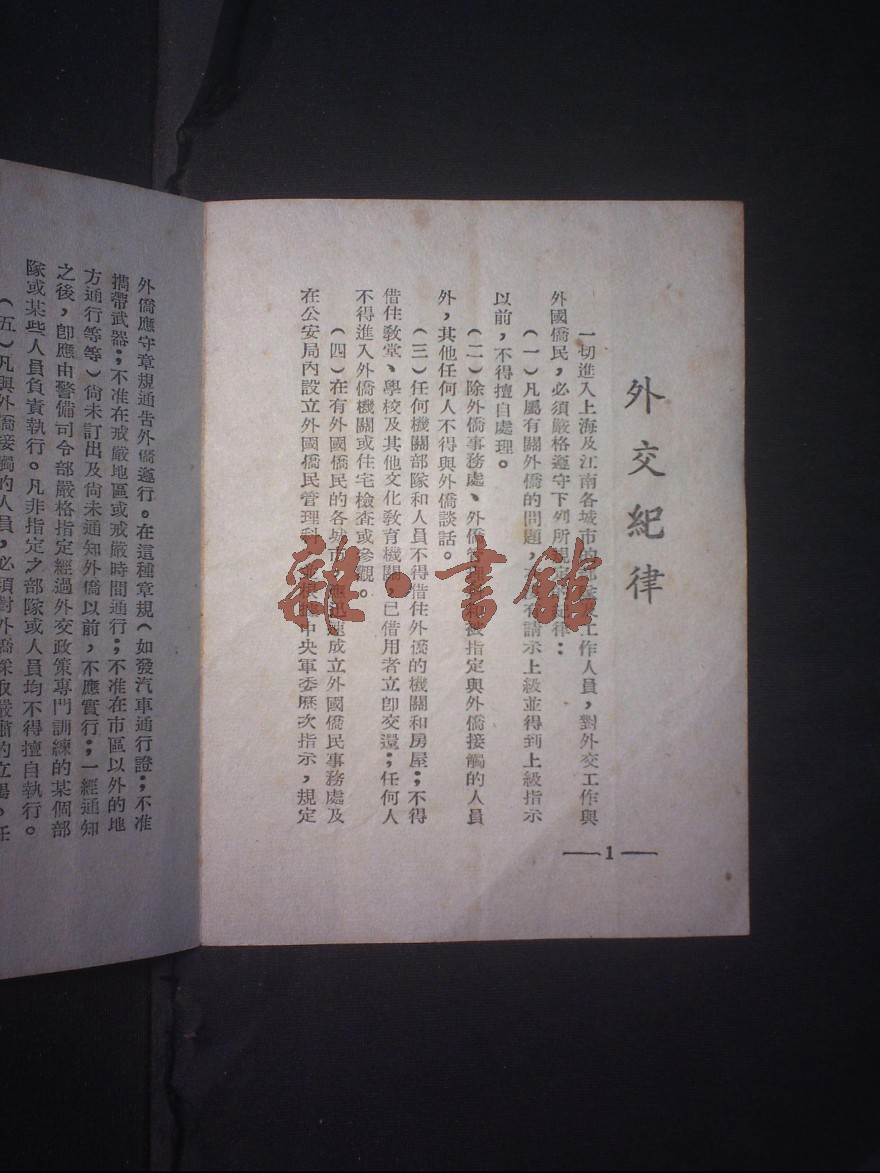 外交紀律
一切進入上海及江南各城市的部隊及工作人員，對外交工作與
外國僑民，必須嚴格遵守下列所規定的紀律：
（一）凡屬有關外僑的問題，在沒有請示上級並得到上級指示
以前，不得擅自處理。
（二）除外僑事務處、外僑管理 被指定與外僑接觸的人員
外，其他任何人不得與外僑談話。
（三）任何機關部隊和人員不得借住外僑的機關和房屋；不得
借住教堂、學校及其他文化教育機關，已借用者立即交還；任何人
不得進入外僑機關或住宅檢查或參觀。
（四）在有外國僑民的各城市，應迅速成立外國僑民事務處及
在公安局內設立外國僑民管理科， 根據中央軍委歷次指示，規定
— 1 —
外僑應守章規通告外僑遵行。在這種章規（如發汽車通行證；不准
攜帶武器；不准在戒嚴地區或戒嚴時間通行；不准在市區以外的地
方通行等等）尚未訂出及尚未通知外僑以前，不應實行；一經通知
之後，卽應由警備司令部嚴格指定經過外交政策專門訓練的某個部
隊或某些人員負責執行。凡非指定之部隊或人員均不得擅自執行。
（五）凡與外僑接觸的人員，必須對外僑採取嚴肅的立場，任
雜·書館